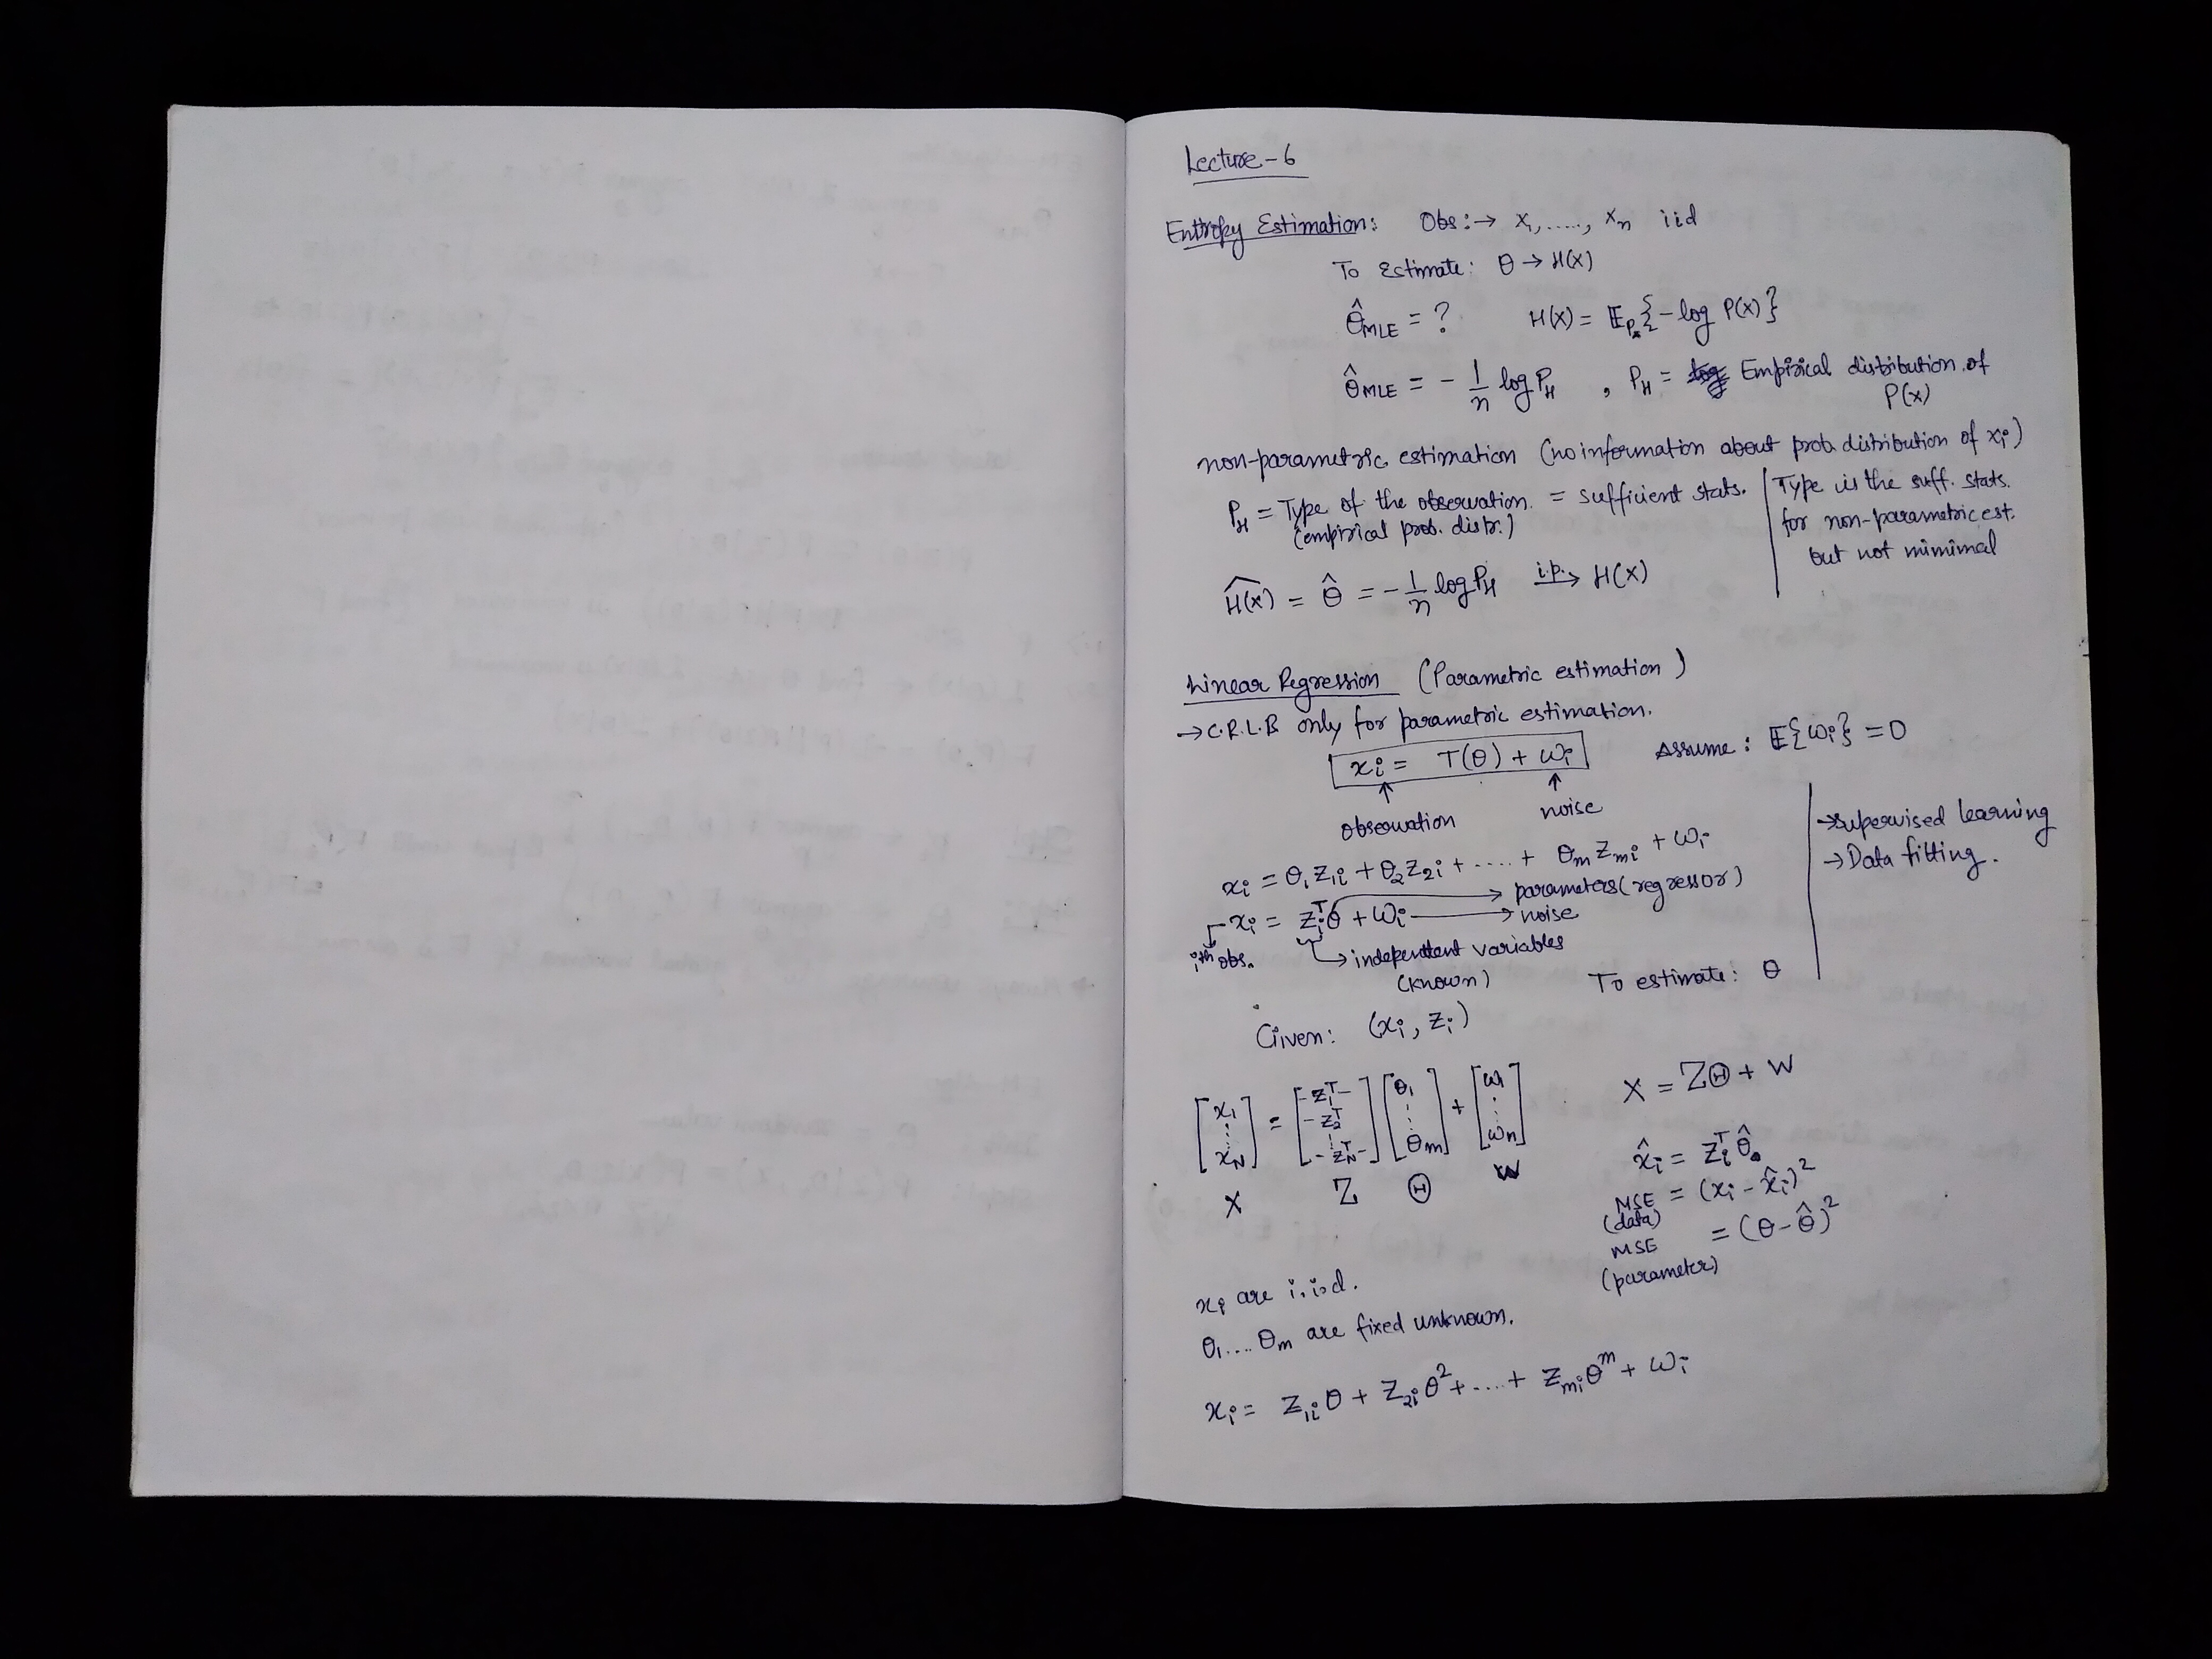 Lecture-6
Entropy Estimation: Obs: → x₁, ....., xₙ iid
To Estimate: θ → H(x)
θ̂_MLE = ? H(x) = 𝔼_Pₓ{-log P(x)}
θ̂_MLE = -1/n log P_H , P_H = Empirical distribution of P(x)
non-parametric estimation (no information about prob. distribution of xᵢ)
P_H = Type of the observation. = sufficient stats. [Type is the suff. stats.
(empirical prob. distr.) for non-parametric est.
but not minimal
Ĥ(x) = θ̂ = -1/n log P_H i.p.→ H(x)
Linear Regression (Parametric estimation)
→ C.R.L.B only for parametric estimation.
xᵢ = T(θ) + ωᵢ Assume: 𝔼{ωᵢ} = 0
observation noise
→ supervised learning
→ Data fitting.
xᵢ = θ₁z₁ᵢ + θ₂z₂ᵢ + ..... + θₘzₘᵢ + ωᵢ
xᵢ = zᵢᵀθ + ωᵢ → parameters (regressor)
→ noise
iᵗʰ obs. → independent variables
(known) To estimate: θ
Given: (xᵢ, zᵢ)
[x₁ ⋮ x_N] = [-z₁ᵀ- -z₂ᵀ- ⋮ -z_Nᵀ-] [θ₁ ⋮ θₘ] + [ω₁ ⋮ ωₙ] X = ZΘ + W
X Z Θ W
x̂ᵢ = zᵢᵀθ̂
MSE (data) = (xᵢ - x̂ᵢ)²
MSE (parameter) = (θ - θ̂)²
xᵢ are i.i.d.
θ₁ .... θₘ are fixed unknown.
xᵢ = z₁ᵢθ + z₂ᵢθ² + ..... + zₘᵢθᵐ + ωᵢ